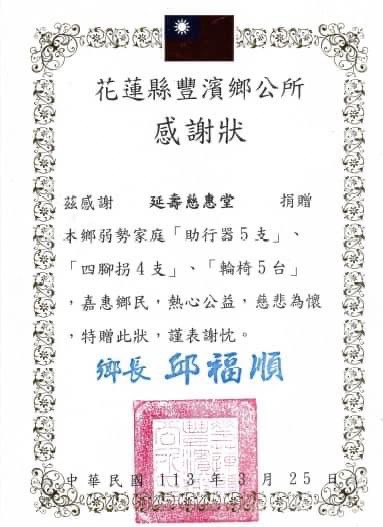 花蓮縣豐濱鄉公所
感謝狀
茲感謝 延壽慈惠堂 捐贈
本鄉弱勢家庭「助行器5支」、
「四腳拐4支」、「輪椅5台」
，嘉惠鄉民，熱心公益，慈悲為懷
，特贈此狀，謹表謝忱。
鄉長 邱福順
中華民國 113 年 3 月 25 日